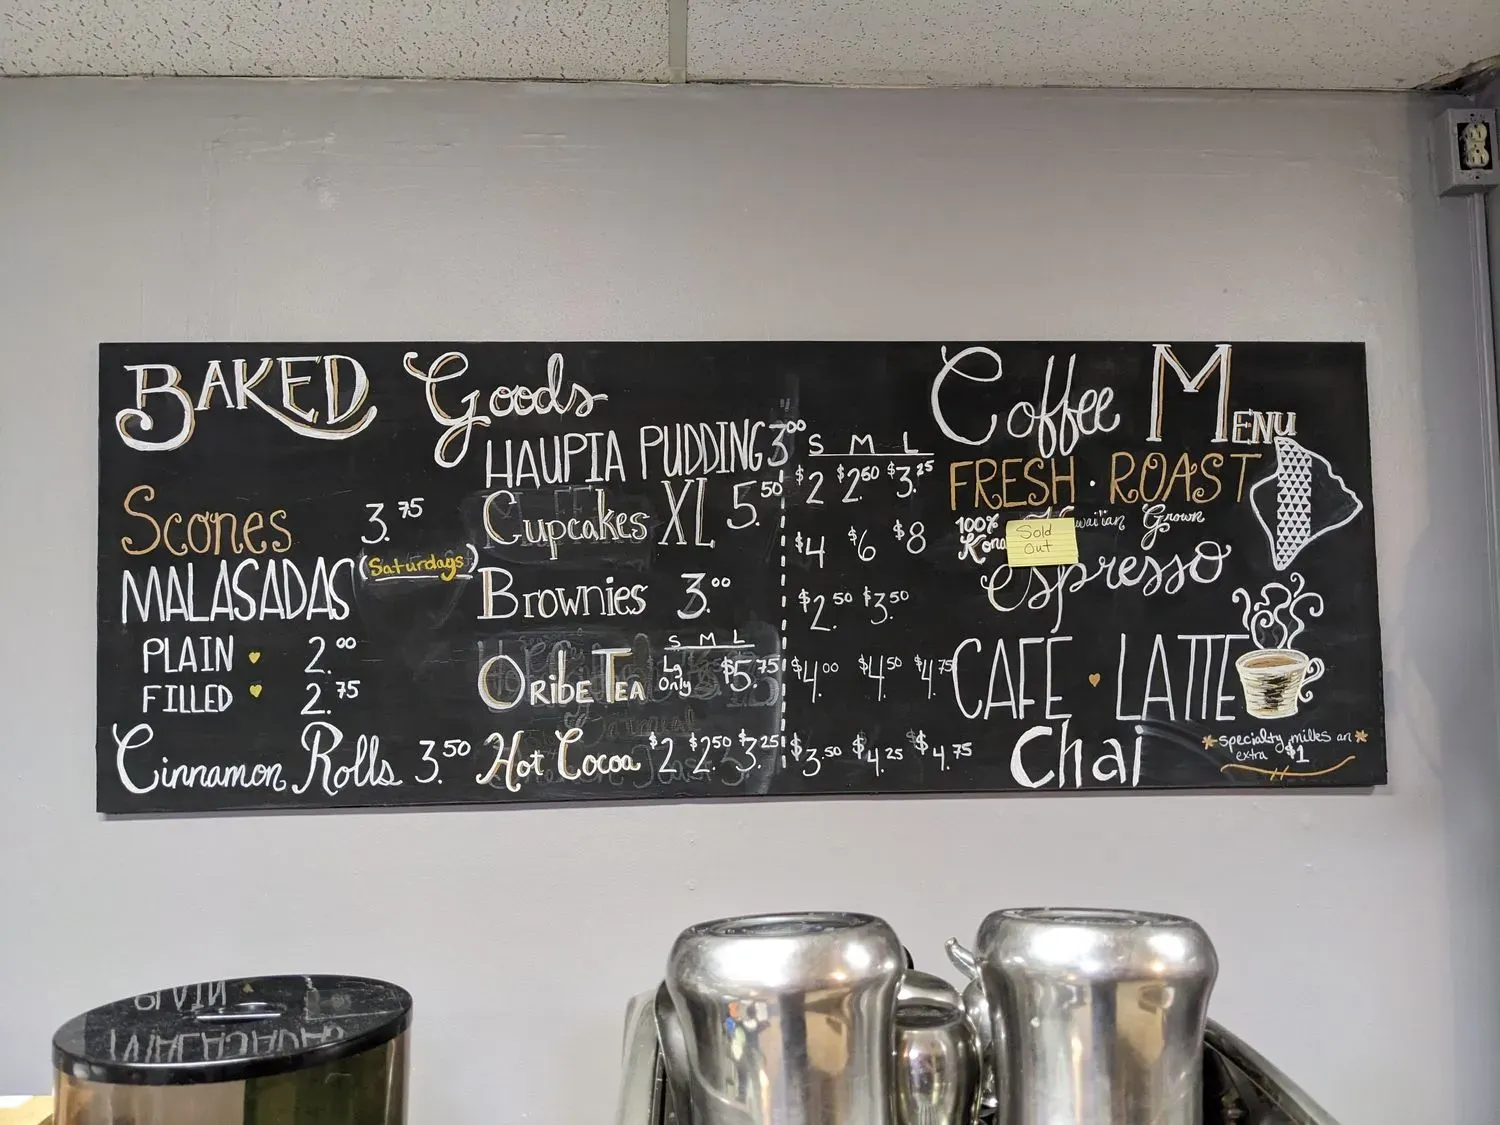 BAKED Goods
HAUPIA PUDDING 3.00
Scones 3.75
Cupcakes XL 5.50
MALASADAS (Saturdays)
PLAIN 2.00
FILLED 2.75
Brownies 3.00
S M L
ORIBE TEA Lg Only $5.75
Cinnamon Rolls 3.50
Hot Cocoa $2 $2.50 $3.25
Coffee MENU
S M L
$2 $2.50 $3.25 FRESH · ROAST
$4 $6 $8 100% Kona Grown
Sold
Out
$2.50 $3.50 espresso
$4.00 $4.50 $4.75 CAFE LATTE
$3.50 $4.25 $4.75 Chai
*specialty milks an*
extra $1
PLAIN
MALASADAS